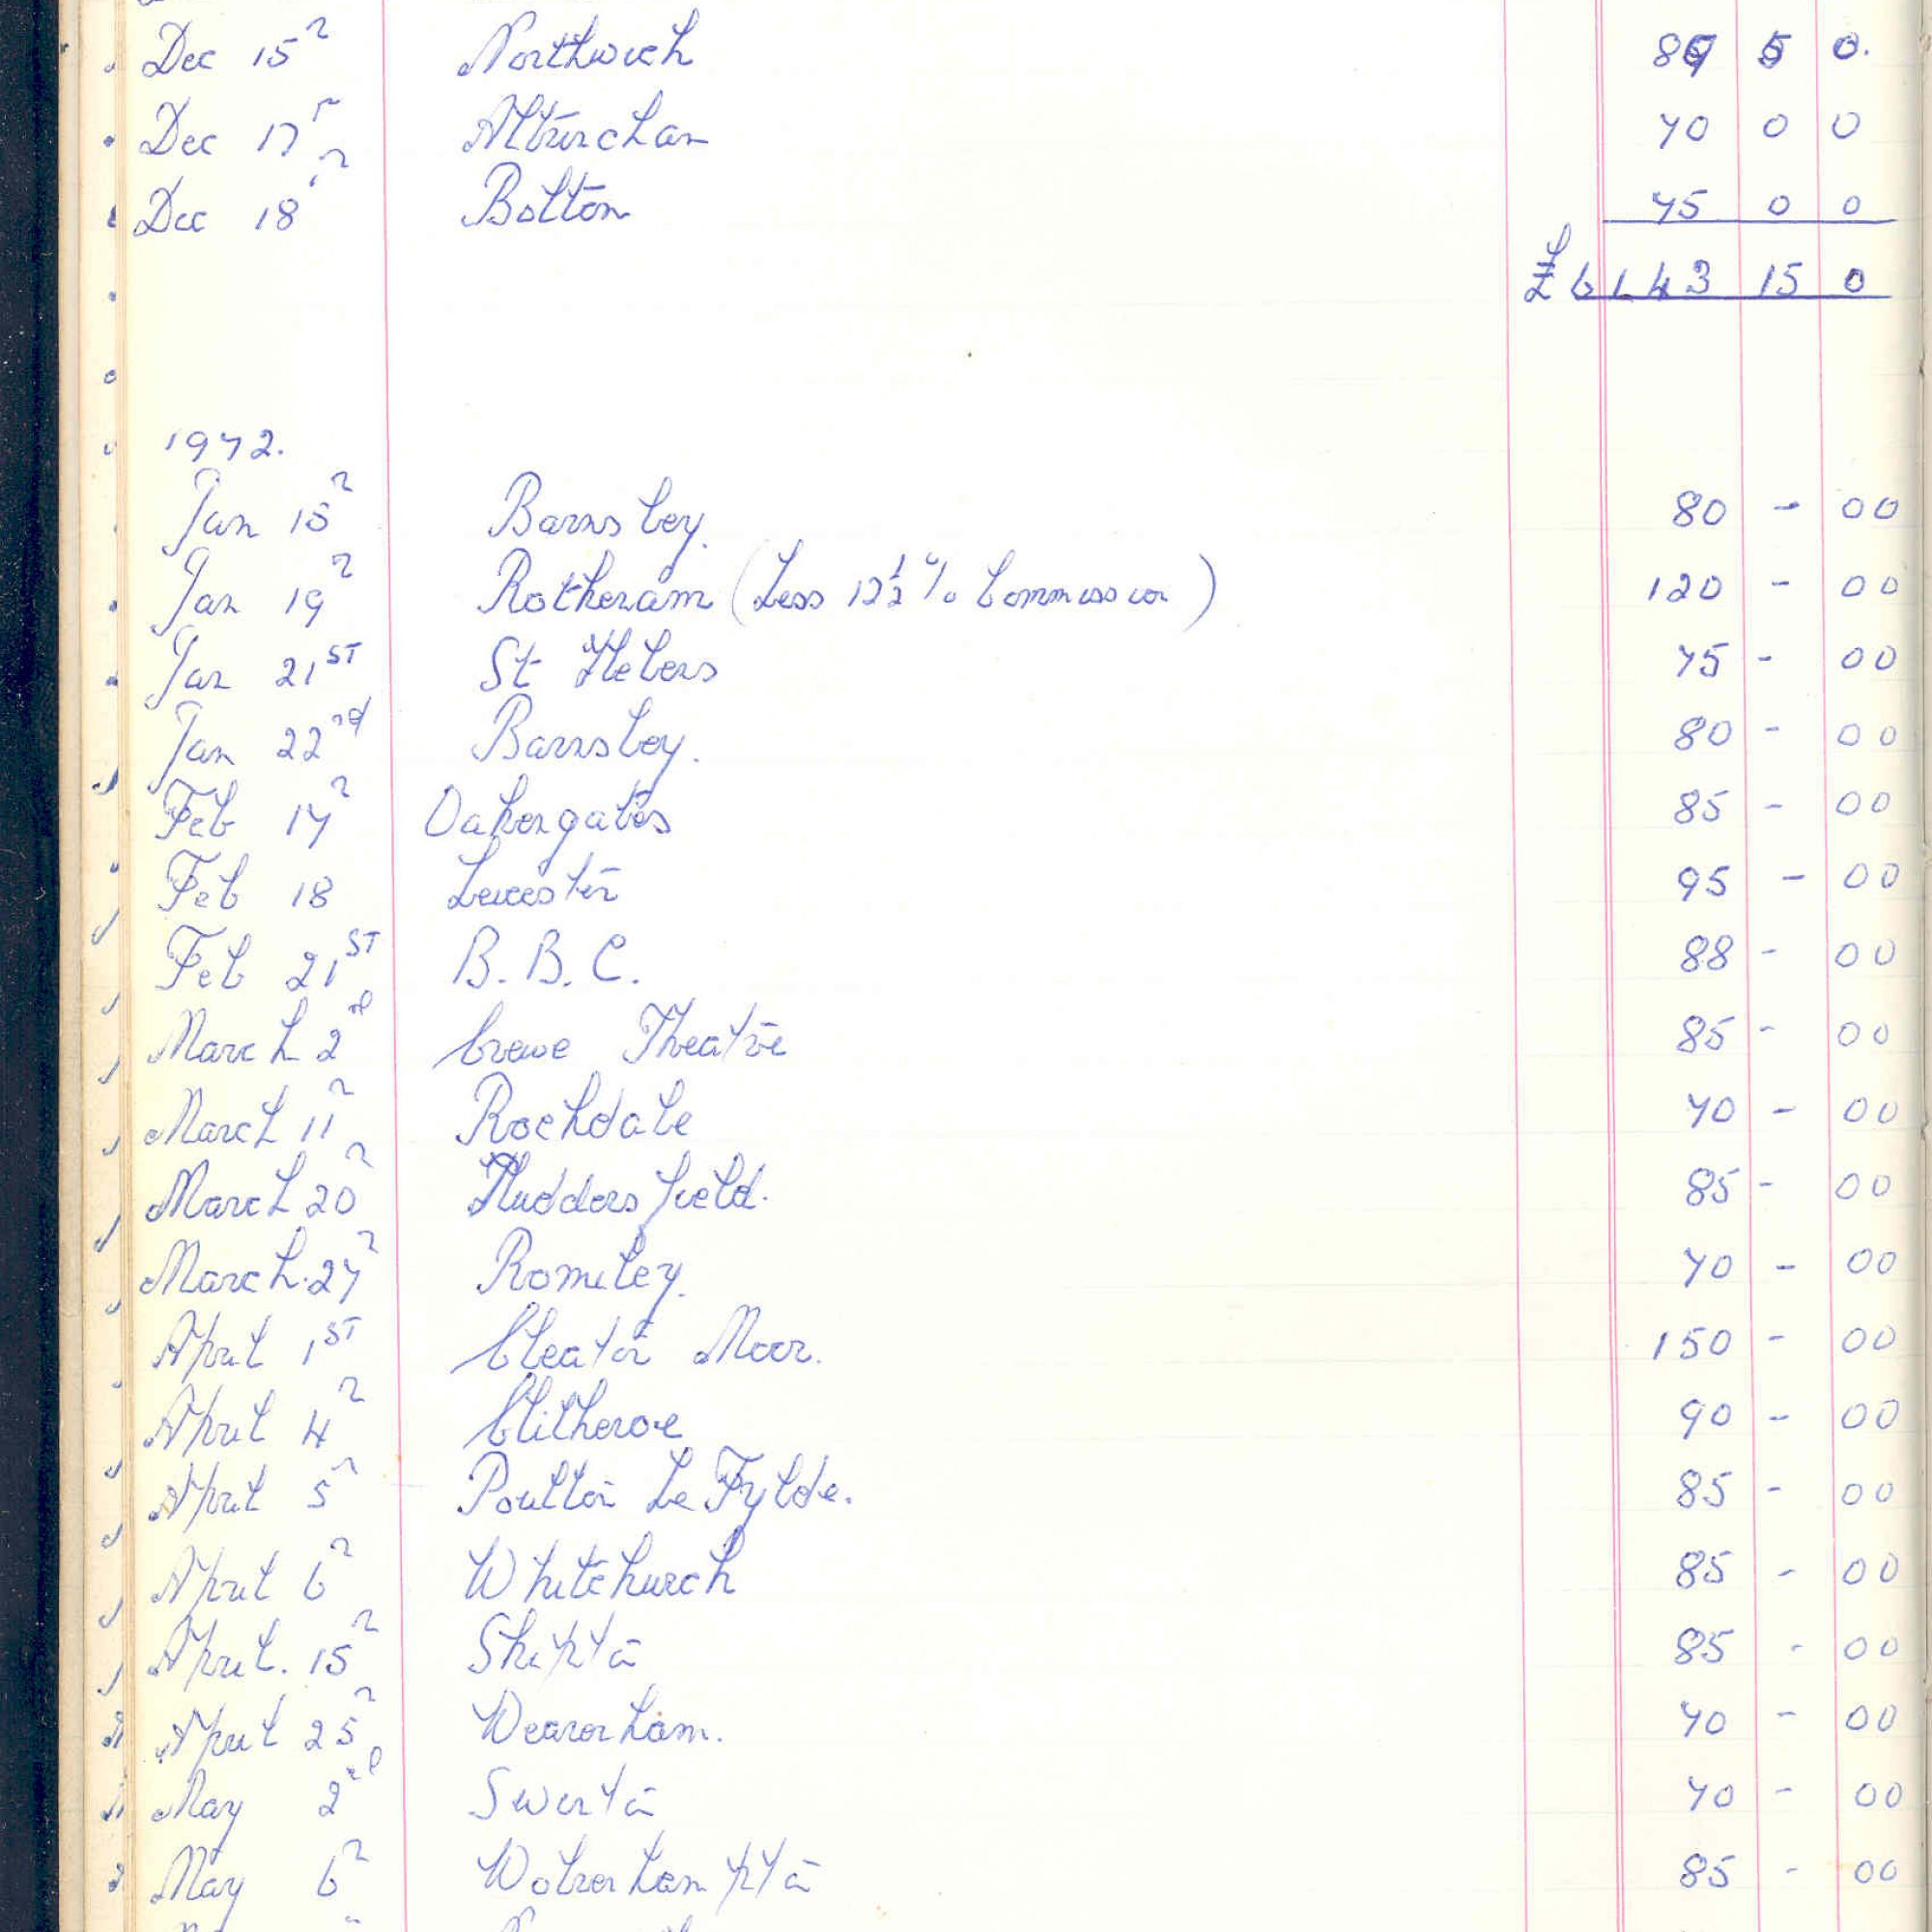 Dec 15th Northwich 89 5 0.
Dec 17th Altrincham 70 0 0
Dec 18th Bolton 75 0 0
£6143 15 0
1972.
Jan 15th Barnsley. 80 - 00
Jan 19th Rotheram (Less 12½% Commission) 120 - 00
Jan 21ST St Helens 75 - 00
Jan 22nd Barnsley. 80 - 00
Feb 17th Oakengates 85 - 00
Feb 18 Leicester 95 - 00
Feb 21ST B.B.C. 88 - 00
March 2nd Crewe Theatre 85 - 00
March 11th Rochdale 70 - 00
March 20th Huddersfield. 85 - 00
March.27th Romiley. 70 - 00
April 1ST Cleator Moor. 150 - 00
April 4th Clitheroe 90 - 00
April 5th Poulton Le Fylde. 85 - 00
April 6th Whitchurch 85 - 00
April. 15th Skipton 85 - 00
April 25th Weaverham. 70 - 00
May 2nd Swinton 70 - 00
May 6th Wolverhampton 85 - 00